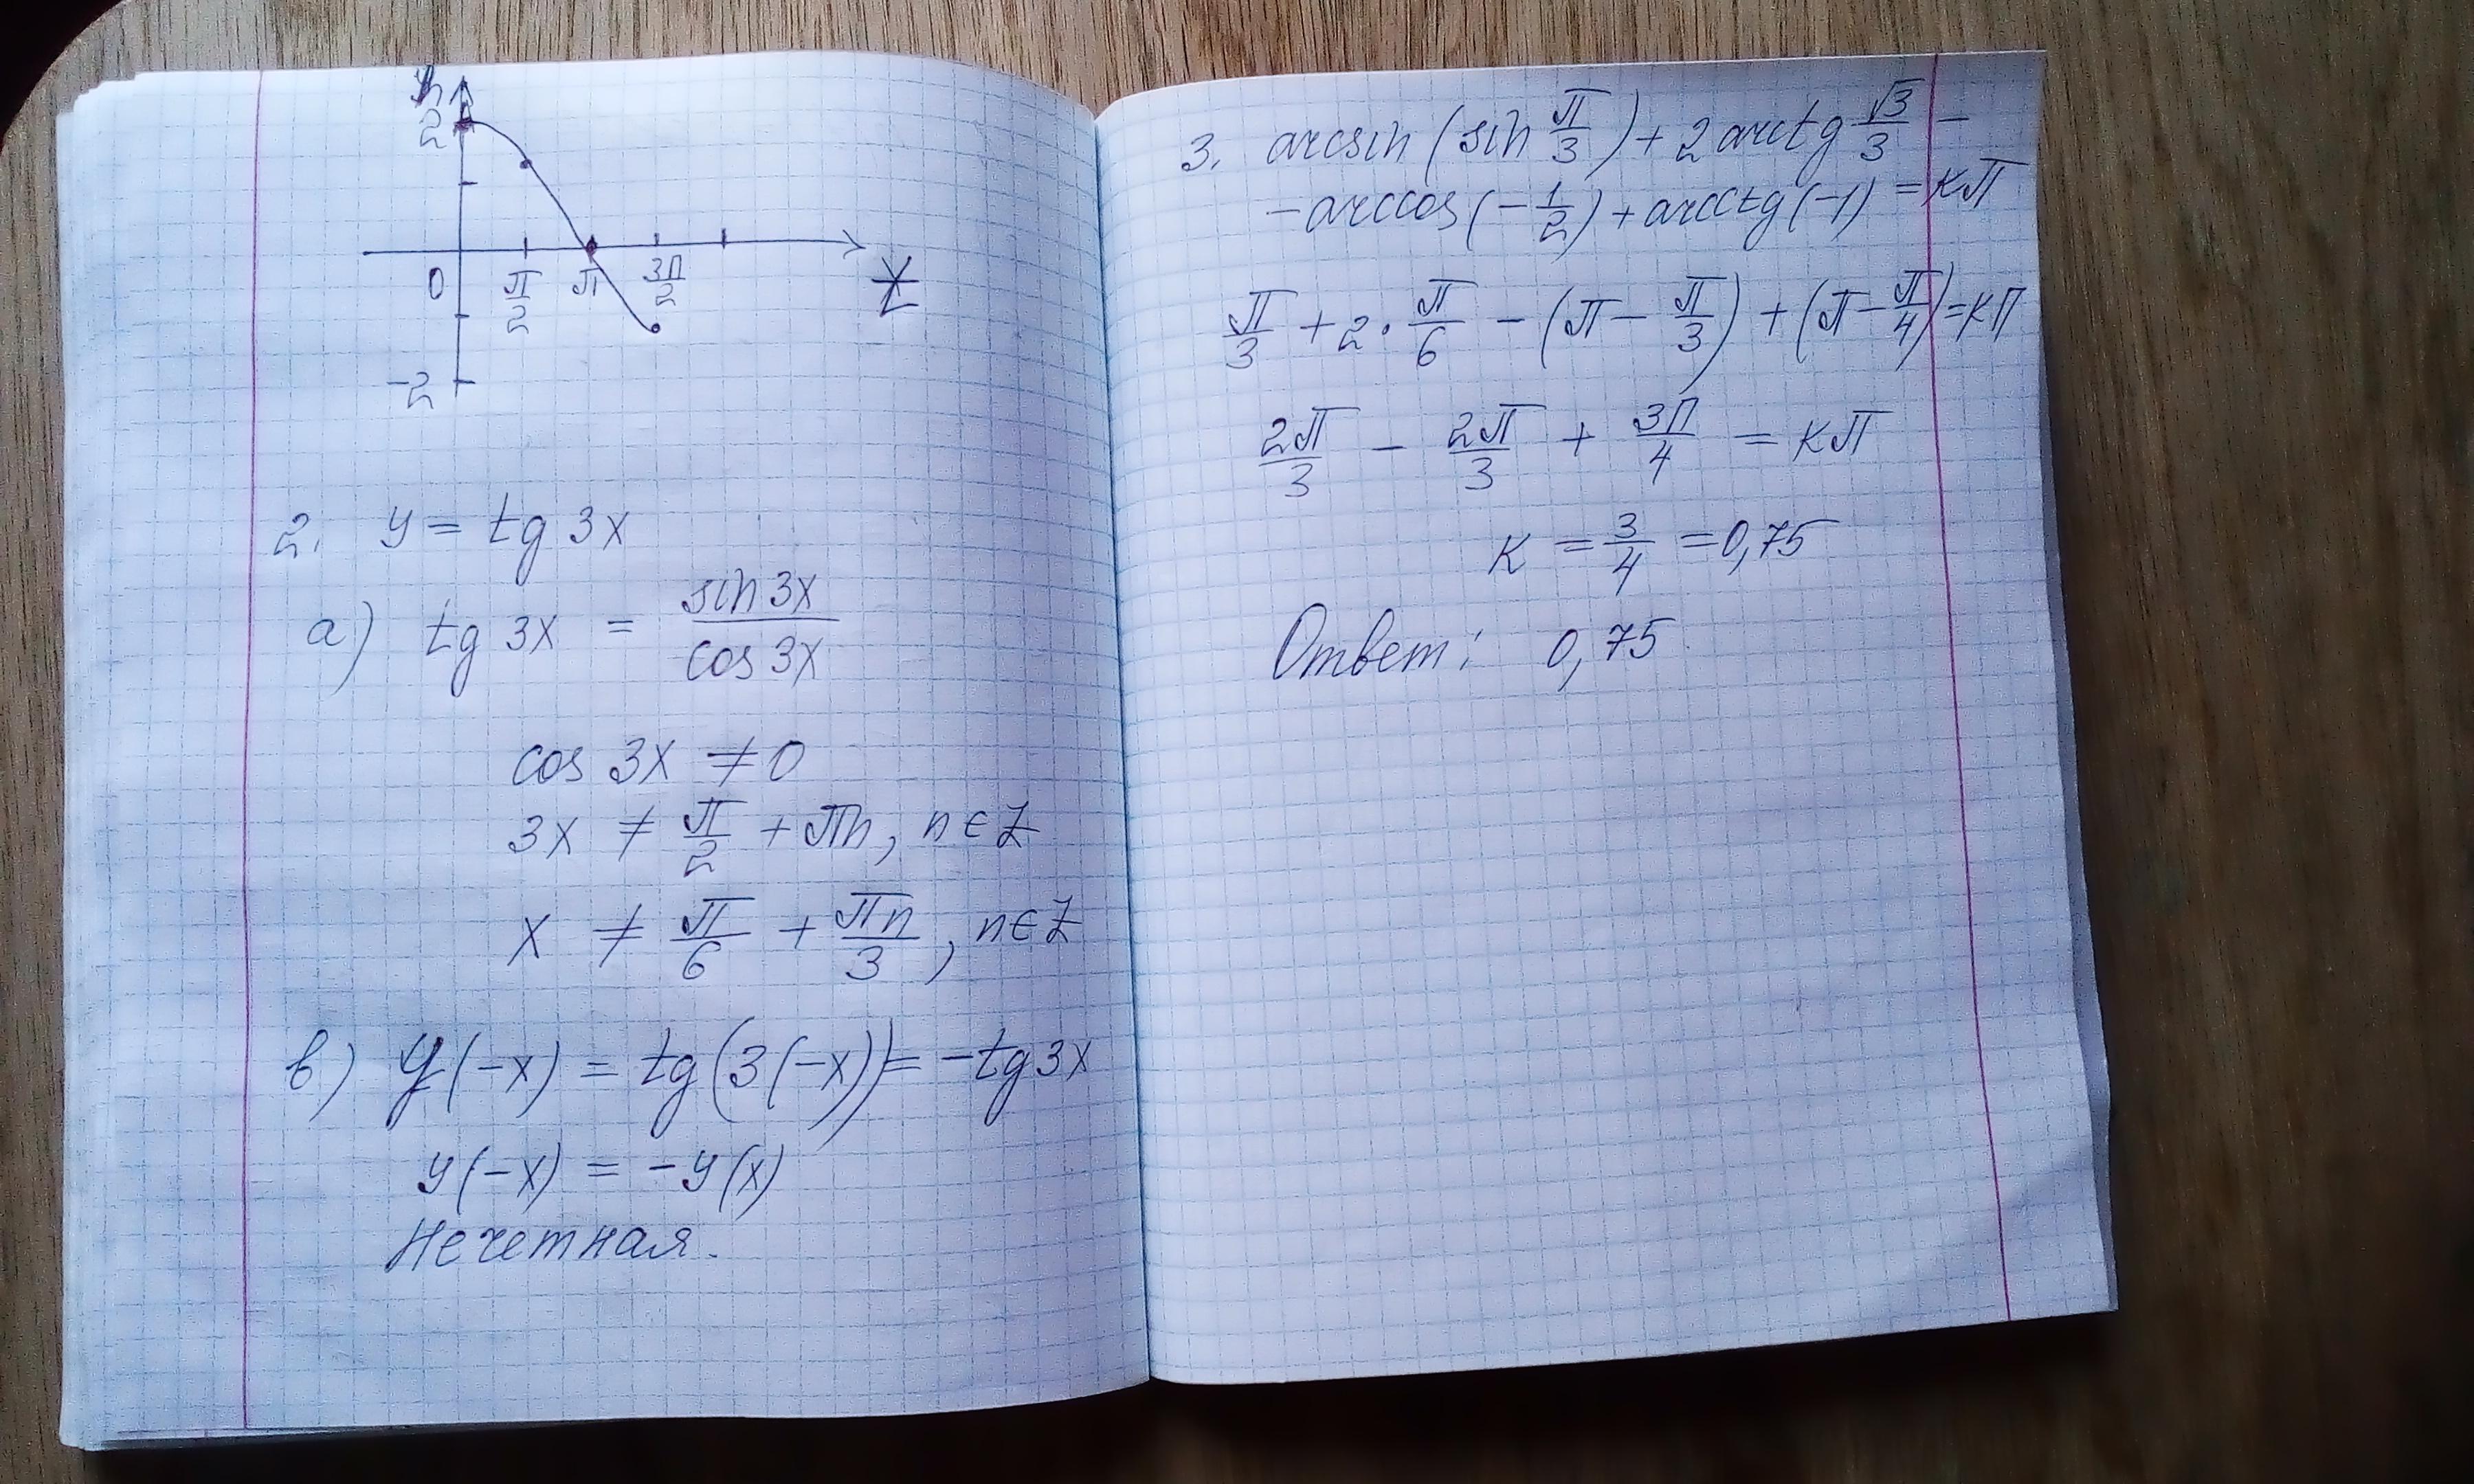 y
2
0 π/2 π 3π/2 x
-2
2. y = tg 3x
a) tg 3x = sin 3x / cos 3x
cos 3x ≠ 0
3x ≠ π/2 + πn, n ∈ Z
x ≠ π/6 + πn/3, n ∈ Z
в) y(-x) = tg(3(-x)) = -tg 3x
y(-x) = -y(x)
Нечетная.
3. arcsin(sin π/3) + 2 arctg √3/3 -
- arccos(-1/2) + arcctg(-1) = кπ
π/3 + 2 · π/6 - (π - π/3) + (π - π/4) = кπ
2π/3 - 2π/3 + 3π/4 = кπ
к = 3/4 = 0,75
Ответ: 0,75.